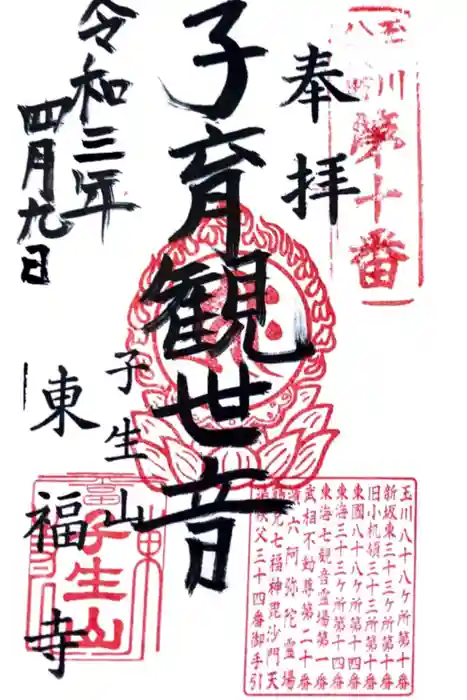 玉川八十八ヶ所
第十番
奉拝
子育観世音
令和三年
四月九日
子生山
東福寺
子生山
玉川八十八ヶ所第十番
新坂東三十三ヶ所第十番
旧小机領三十三所第十番
東國八十八ヶ所第十四番
東海三十三ヶ所第十四番
東海七観音霊場第一番
武相不動尊第二十番
六阿弥陀霊場
七福神毘沙門天
秩父三十四番御手引